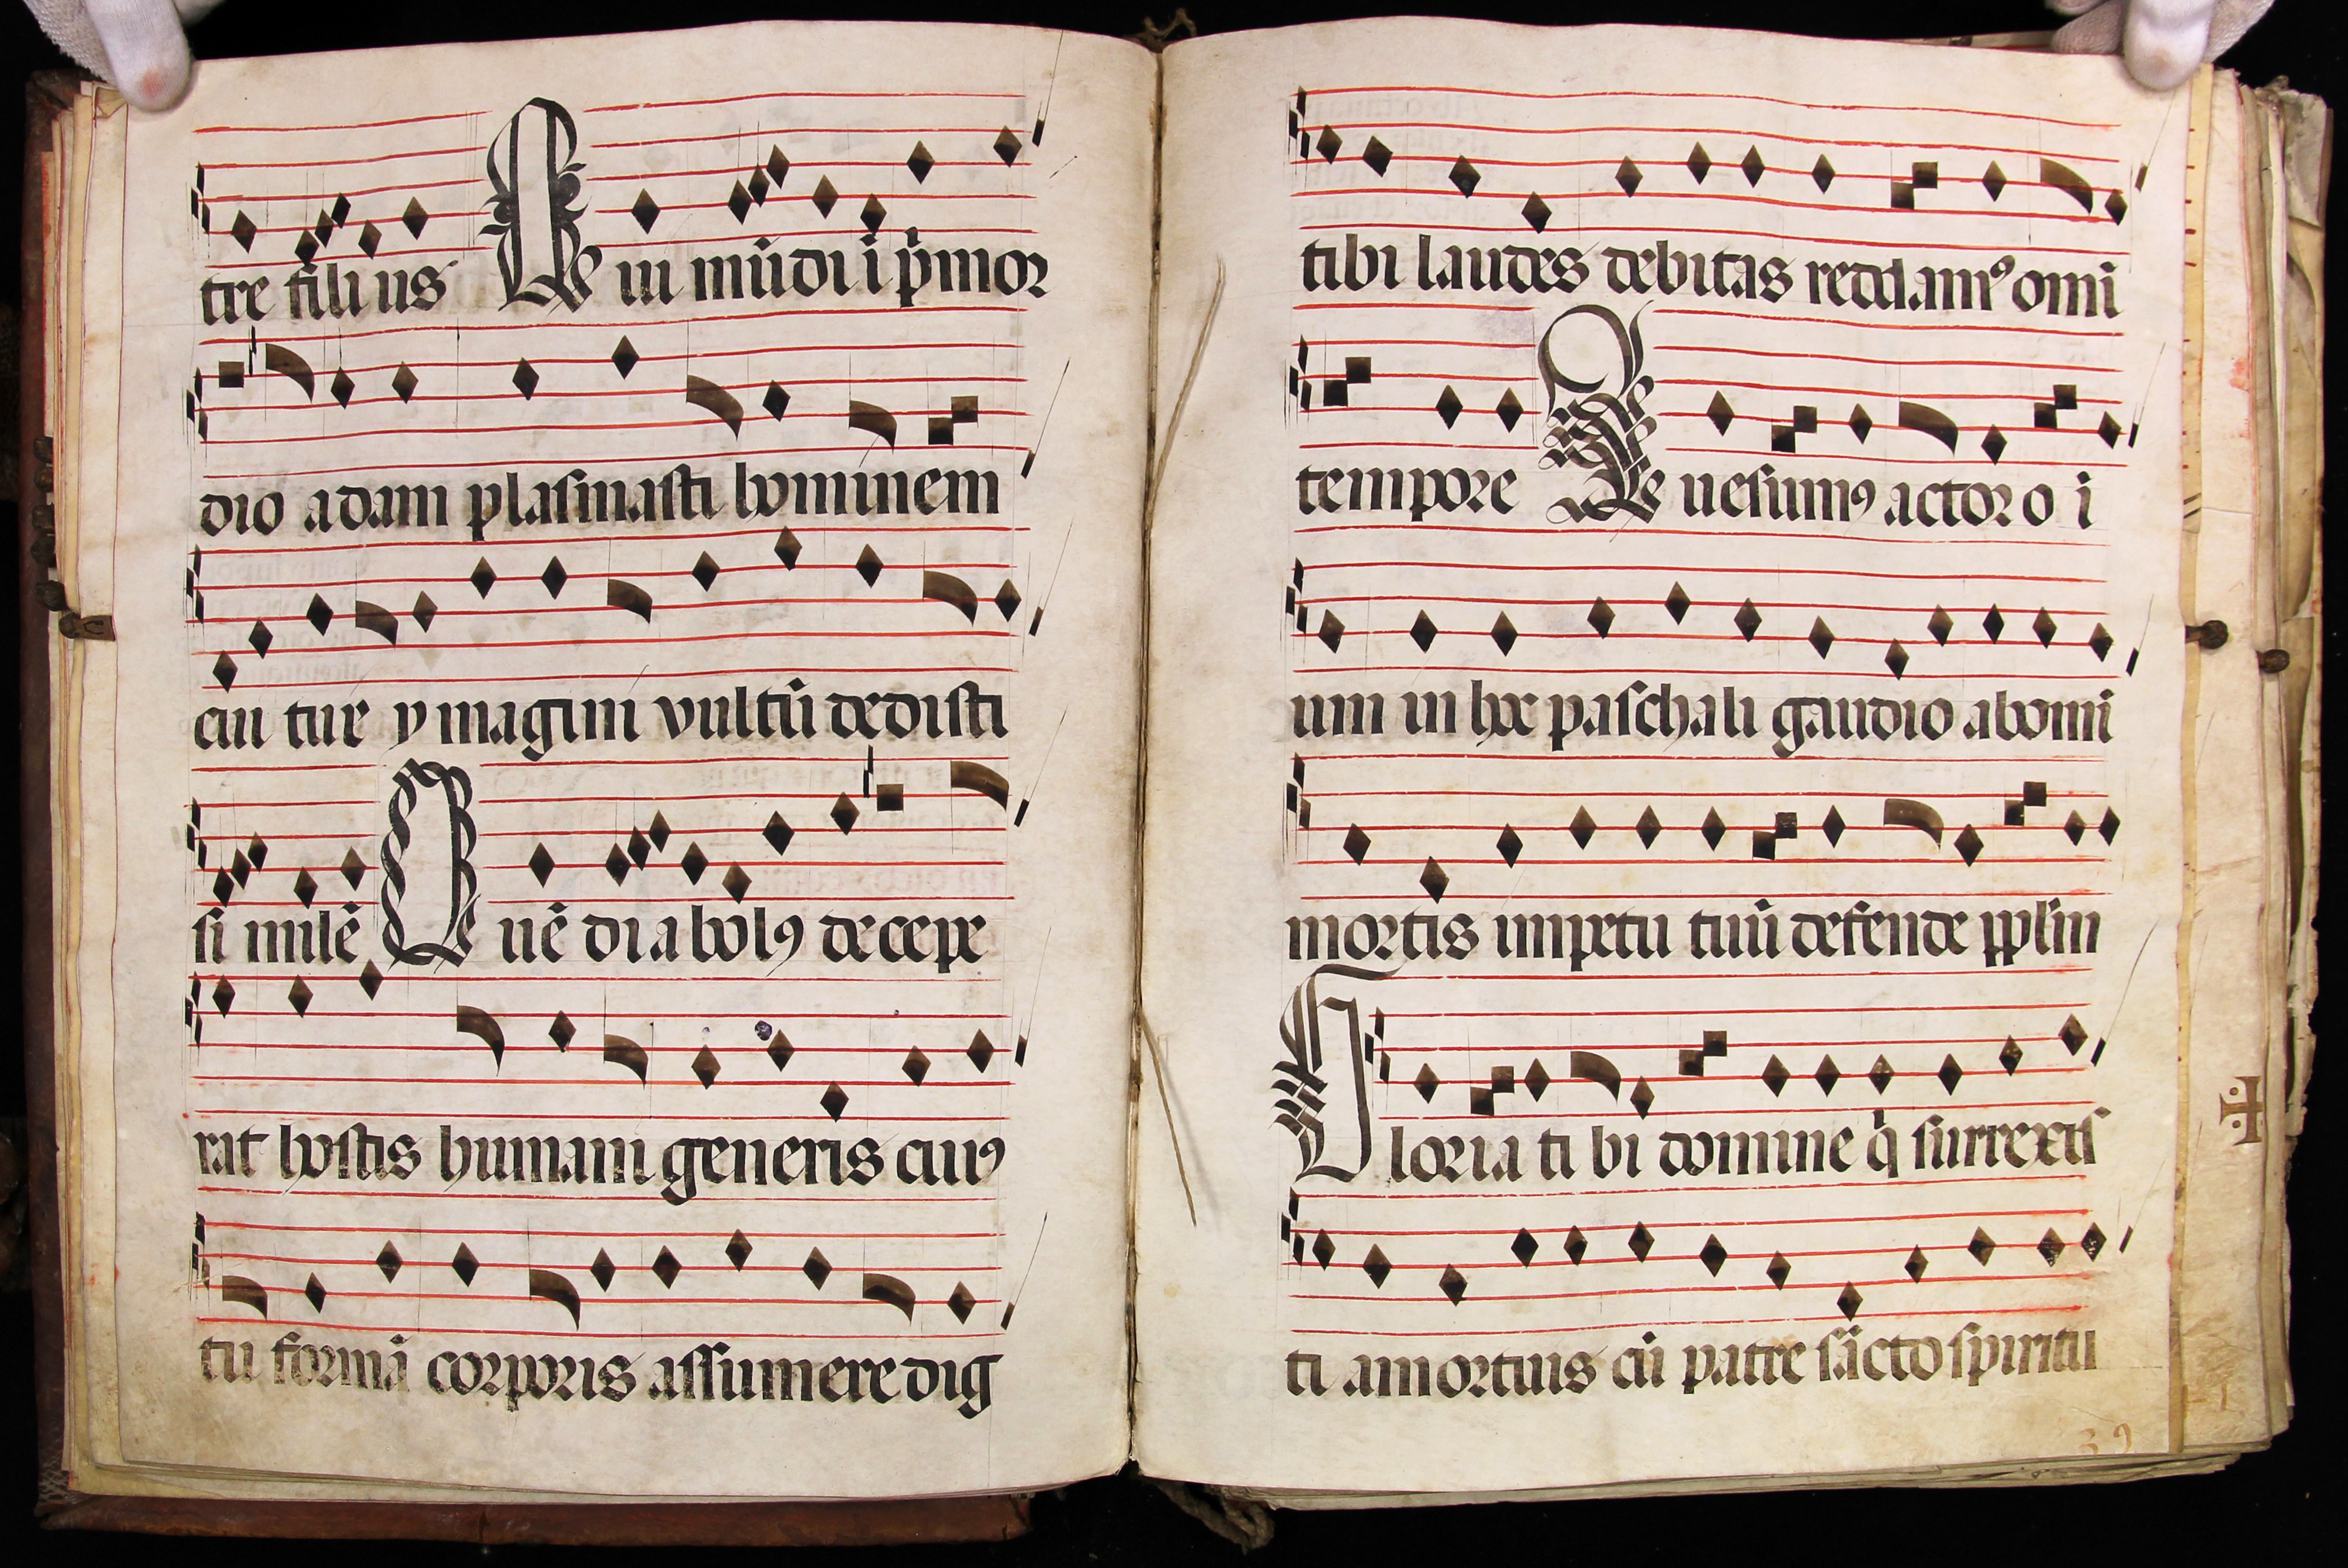 tre fili us Q ui mũdi i p̃mor
dio adam plasmasti hominem
cui tue ymagini vultũ dedisti
si milẽ Q uẽ diabolꝰ decepe
rat hostis humani generis cuiꝰ
tu formã corporis assumere dig
tibi laudes debitas reddamꝰ omĩ
tempore Q uesumꝰ actor o ĩ
um in hoc paschali gaudio ab omĩ
mortis impetu tuũ defende pplm̃
Gloria ti bi domine q̃ surrexis
ti a mortuis cũ patre sãcto spiritu
39